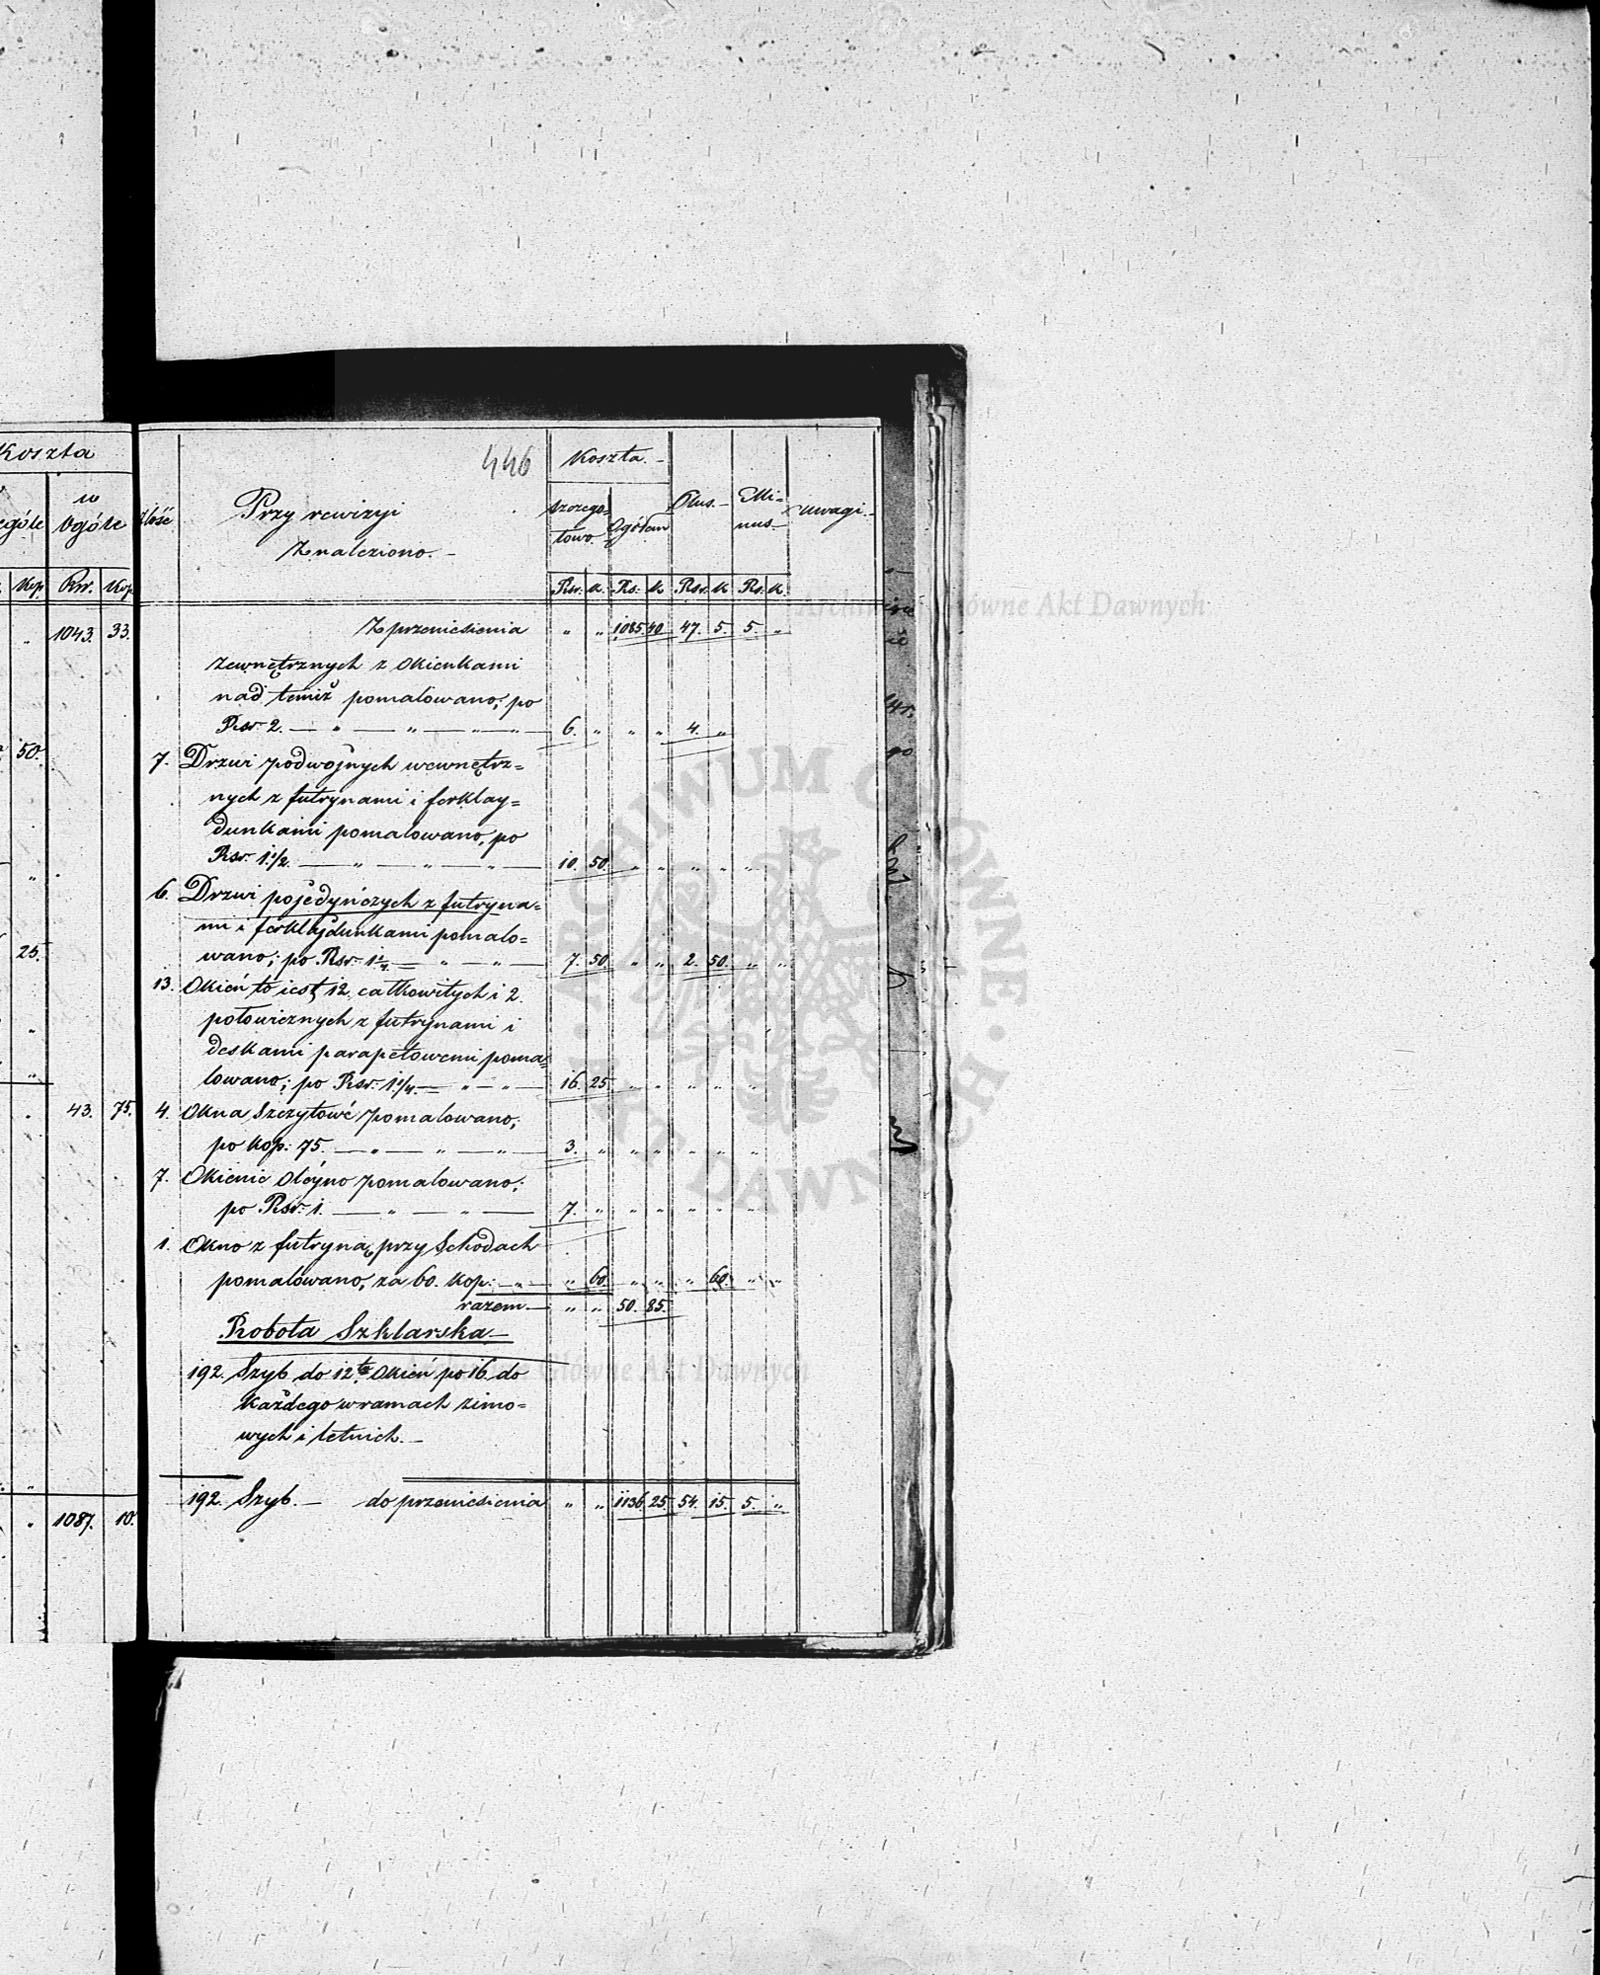 Koszta
w
Ogóle
Kop. Rsr. Kop.
" 1043. 33.
50.
"
25.
"
"
" 43. 75.
"
" 1087. 10.
446
Ilość Przy rewizyi Znaleziono. Koszta. Plus. Minus. uwagi.
szczegółowo. Ogółem
Rsr. k. Rs: k. Rsr. k. Rs. k.
Z przeniesienia " " 1085. 40. 47. 5. 5. "
Zewnętrznych z Okienkami
nad temiż pomalowano; po
Rsr. 2. — " — " — " — 6. " " " 4. "
7. Drzwi podwójnych wewnętrz=
nych z futrynami i ferklay=
dunkami pomalowano, po
Rsr. 1 1/2. — " — " — " — 10. 50. " " " " " "
6. Drzwi pojedyńczych z futryna=
mi i ferklajdunkami pomalo=
wano; po Rsr: 1 1/4 — " — " — 7. 50. " " 2. 50. " "
13. Okień to iest 12. całkowitych i 2.
połowicznych z futrynami i
deskami parapetowemi poma=
lowano; po Rsr. 1 1/4. — " — " — 16. 25. " " " " "
4. Okna Szczytowé pomalowano;
po kop: 75. — " — " — " — 3. " " " " " "
7. Okienic Oleyno pomalowano;
po Rsr. 1. — " — " — 7. " " " " " "
1. Okno z futryną przy Schodach
pomalowano, za 60. kop: — " — " 60. " " " 60. " "
razem — " " 50. 85.
Robota Szklarska —
192. Szyb do 12tu Okień po 16. do
każdego w ramach zimo=
wych i letnich. —
192. Szyb. — do przeniesienia " " 1136. 25. 54. 15. 5. "
Archiwum Główne Akt Dawnych
ARCHIWUM GŁÓWNE AKT DAWNYCH
Archiwum Główne Akt Dawnych